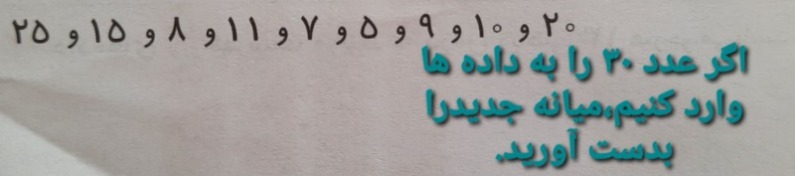 ۲۰ و ۱۰ و ۹ و ۵ و ۷ و ۱۱ و ۸ و ۱۵ و ۲۵
اگر عدد ۳۰ را به داده ها
وارد کنیم،میانه جدیدرا
بدست آورید.